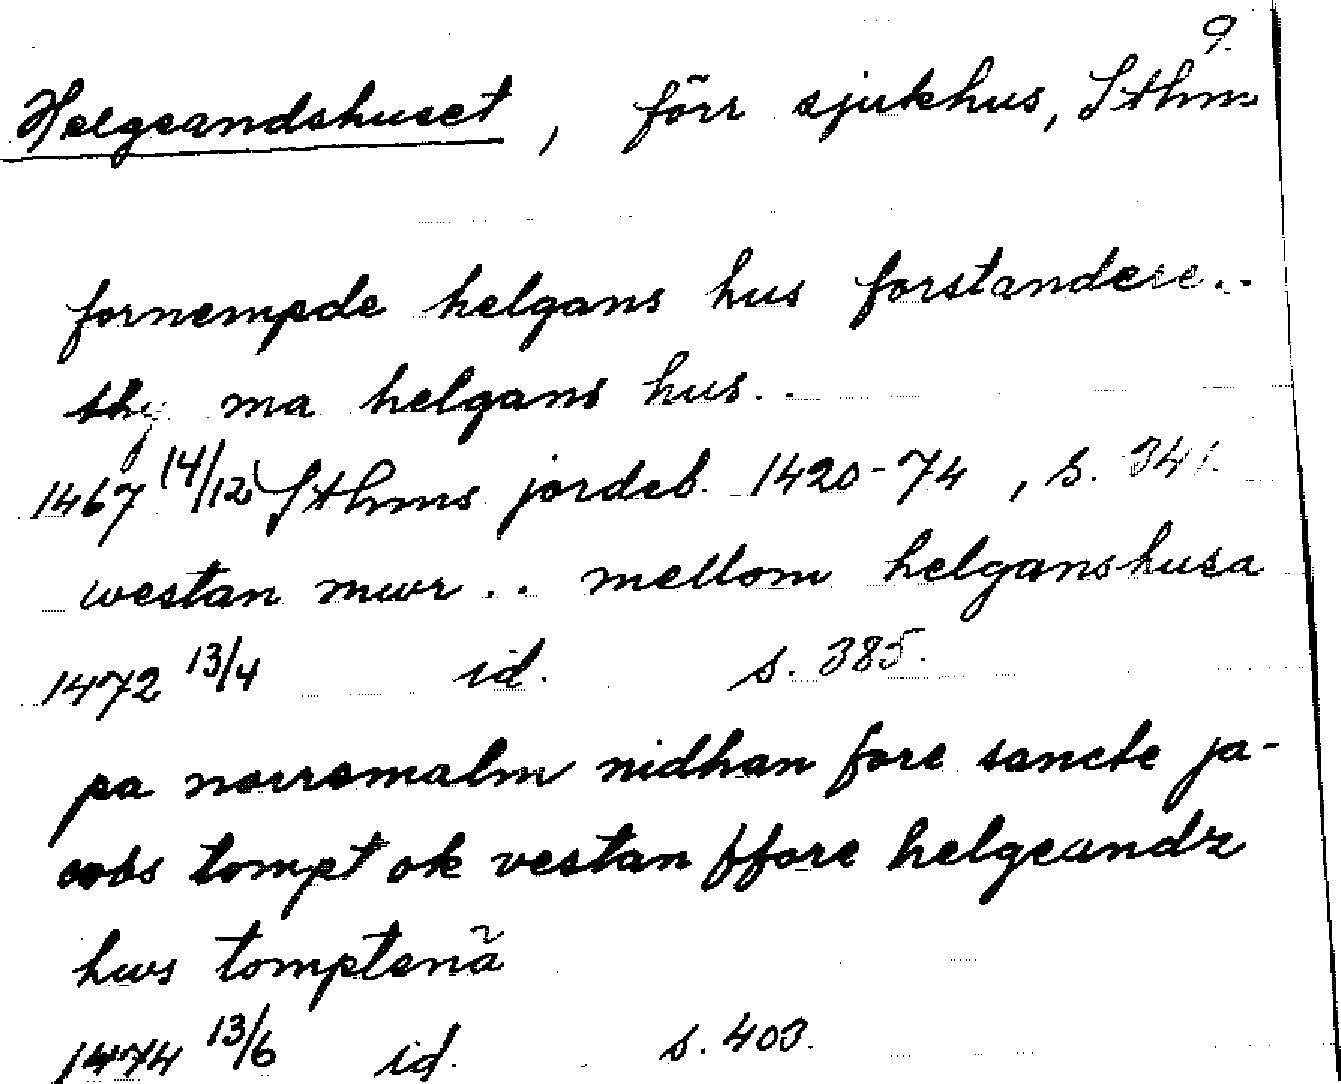 9.
Helgeandshuset, förr sjukhus, Sthm
fornempde helgans hus forstandere..
thy ma helgans hus..
1467 14/12 Sthms jordeb. 1420-74, s. 341.
westan mwr .. mellom helganshusa
1472 13/4 id. s. 385.
pa norremalm nidhan fore sancte ja-
cobs tompt ok vestan ffore helgeandz
hws tomptenã
1474 13/6 id. s. 403.